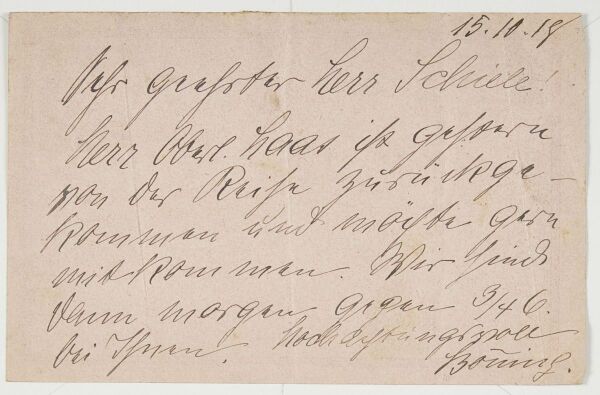 15.10.18
Sehr geehrter Herr Schiele!
Herr Oberl. Haas ist gestern
von der Reise zurückge-
kommen und möchte gern
mitkommen. Wir sind
dann morgen gegen 3/4 6.
bei Ihnen. Hochachtungsvoll
Böning.